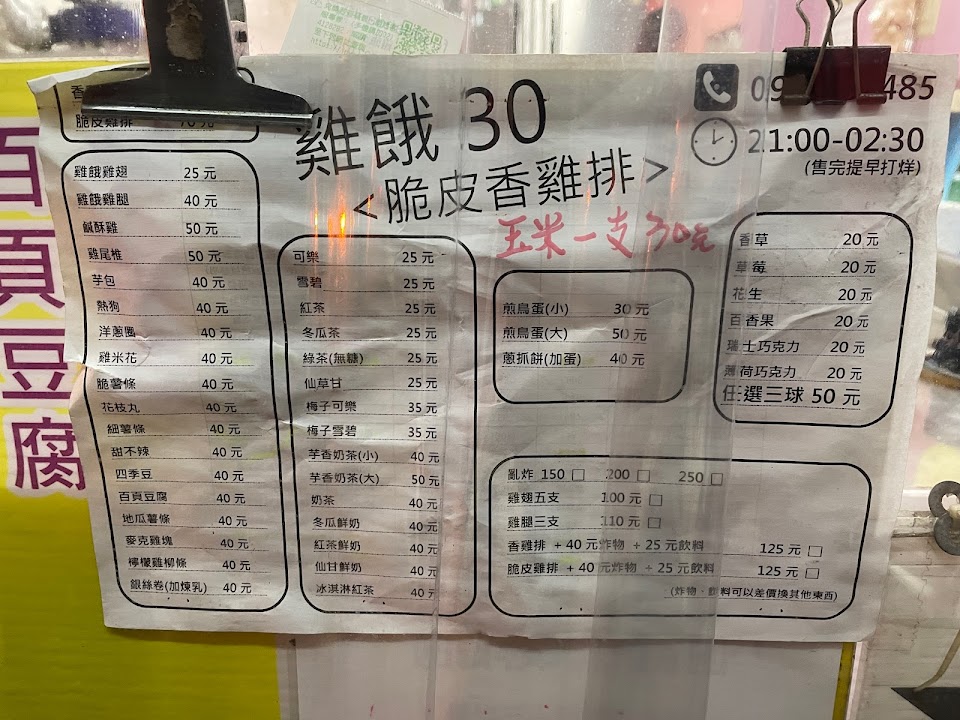 百頁豆腐
脆皮雞排 70元
雞餓雞翅 25元
雞餓雞腿 40元
鹹酥雞 50元
雞尾椎 50元
芋包 40元
熱狗 40元
洋蔥圈 40元
雞米花 40元
脆薯條 40元
花枝丸 40元
細薯條 40元
甜不辣 40元
四季豆 40元
百頁豆腐 40元
地瓜薯條 40元
麥克雞塊 40元
檸檬雞柳條 40元
銀絲卷(加煉乳) 40元
雞餓 30
<脆皮香雞排>
485
21:00-02:30
(售完提早打烊)
玉米一支30元
可樂 25元
雪碧 25元
紅茶 25元
冬瓜茶 25元
綠茶(無糖) 25元
仙草甘 25元
梅子可樂 35元
梅子雪碧 35元
芋香奶茶(小) 40元
芋香奶茶(大) 50元
奶茶 40元
冬瓜鮮奶 40元
紅茶鮮奶 40元
仙甘鮮奶 40元
冰淇淋紅茶 40元
煎鳥蛋(小) 30元
煎鳥蛋(大) 50元
蔥抓餅(加蛋) 40元
香草 20元
草莓 20元
花生 20元
百香果 20元
瑞士巧克力 20元
薄荷巧克力 20元
任選三球 50元
亂炸 150 □ 200 □ 250 □
雞翅五支 100元 □
雞腿三支 110元 □
香雞排 +40元炸物 +25元飲料 125元 □
脆皮雞排 +40元炸物 +25元飲料 125元 □
(炸物、飲料可以差價換其他東西)